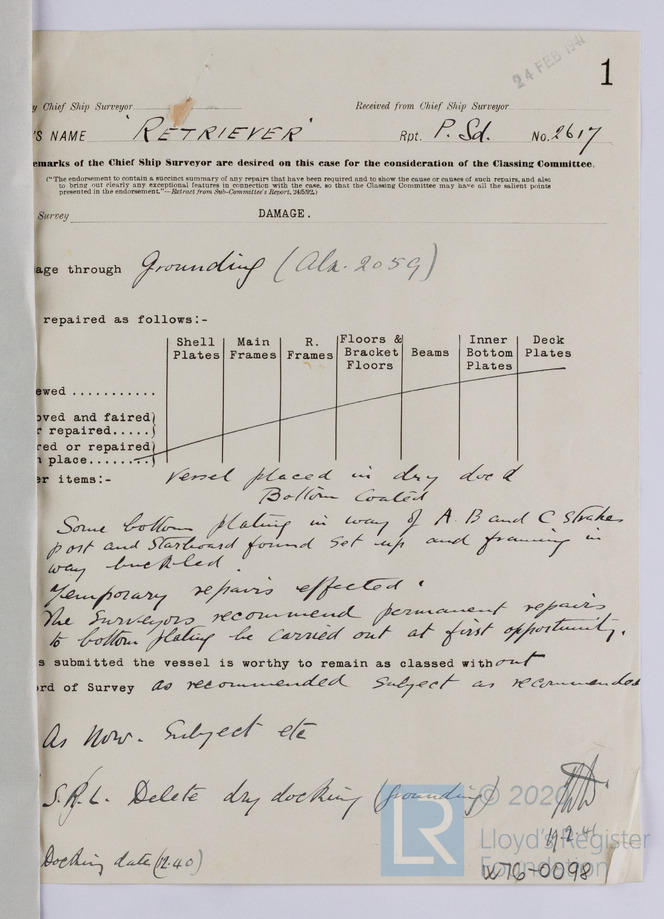 24 FEB 1941
1
y Chief Ship Surveyor Received from Chief Ship Surveyor
'S NAME 'RETRIEVER' Rpt. P. Sd. No. 2617
emarks of the Chief Ship Surveyor are desired on this case for the consideration of the Classing Committee.
("The endorsement to contain a succinct summary of any repairs that have been required and to show the cause or causes of such repairs, and also
to bring out clearly any exceptional features in connection with the case, so that the Classing Committee may have all the salient points
presented in the endorsement."—Extract from Sub-Committee's Report, 24/5/92.)
Survey DAMAGE.
age through Grounding (Alx. 2059)
repaired as follows:-
Shell Plates Main Frames R. Frames Floors & Bracket Floors Beams Inner Bottom Plates Deck Plates
ewed ...........
oved and faired)
r repaired.....(
red or repaired)
n place........(
er items:- Vessel placed in dry dock
Bottom Coated
Some bottom plating in way of A. B and C Strakes
port and Starboard found set up and framing in
way buckled.
Temporary repairs effected.
The Surveyors recommend permanent repairs
to bottom plating be carried out at first opportunity.
s submitted the vessel is worthy to remain as classed without
ord of Survey as recommended Subject as recommended
As Now. Subject etc
S.R.L. Delete dry docking (grounding)
19.2.41
Docking date (12.40)
W76-0098
LR
© 2020
Lloyd's Register
Foundation